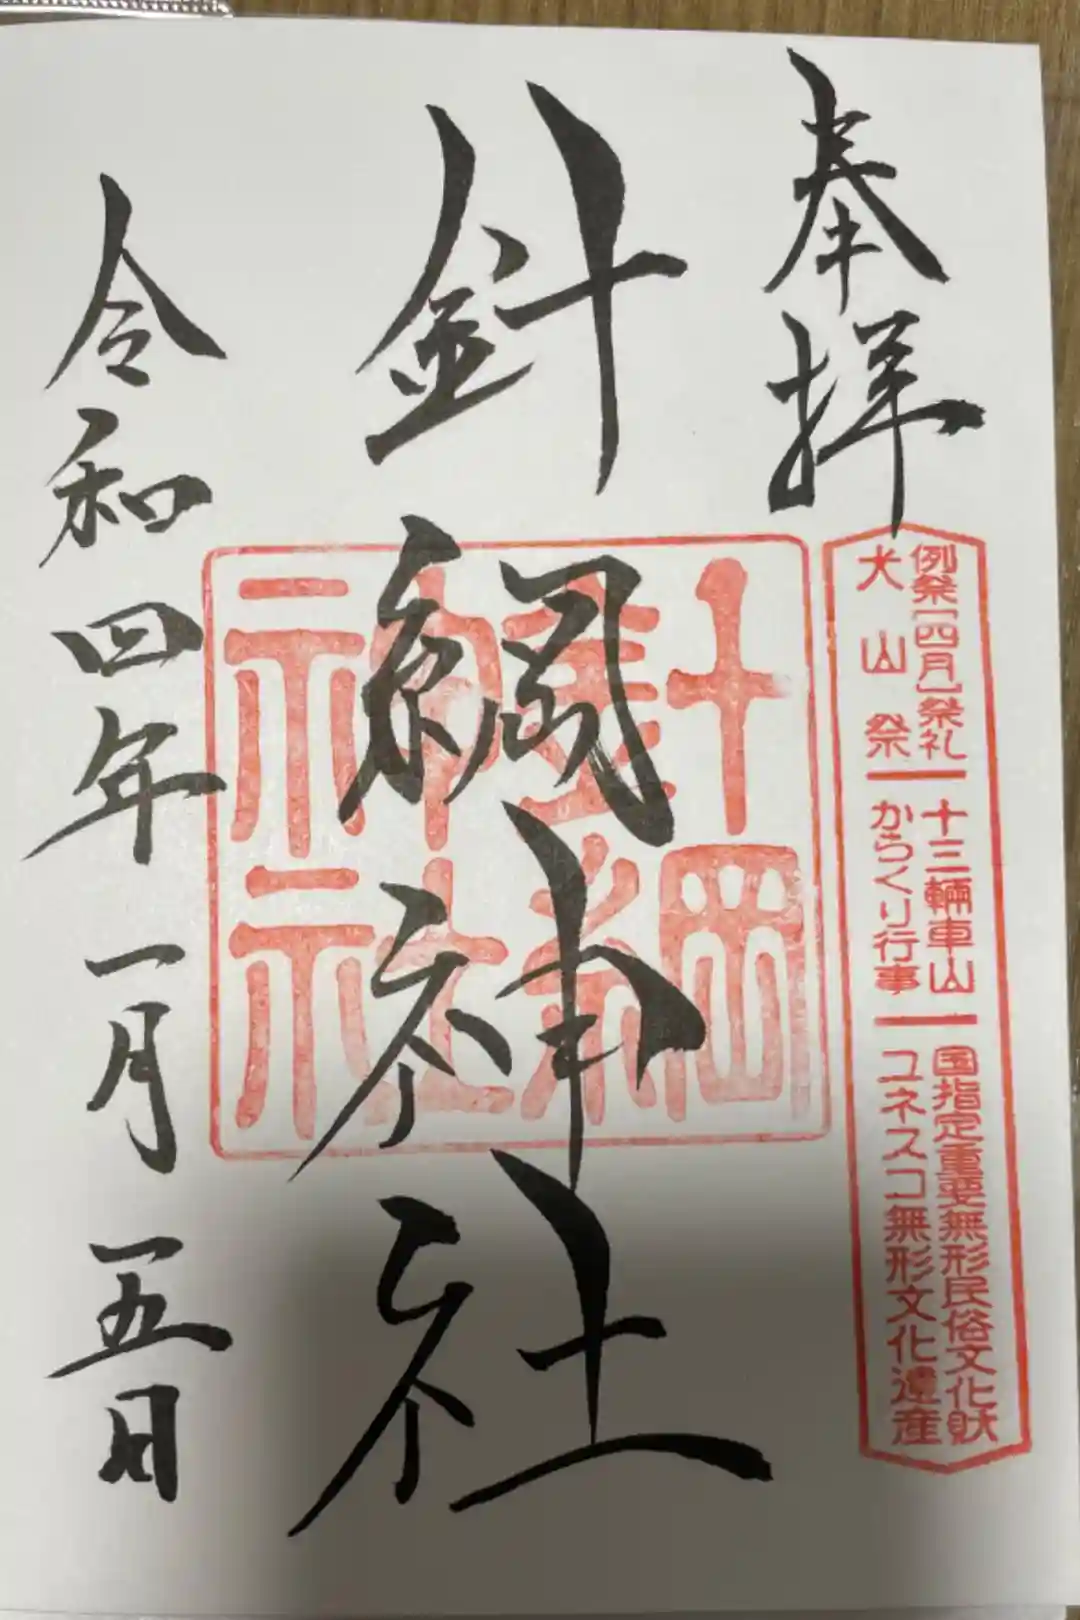 奉拝
例祭[四月]祭礼
犬山祭
十三輛車山
からくり行事
国指定重要無形民俗文化財
ユネスコ無形文化遺産
針綱神社
針綱
神社
令和四年一月五日